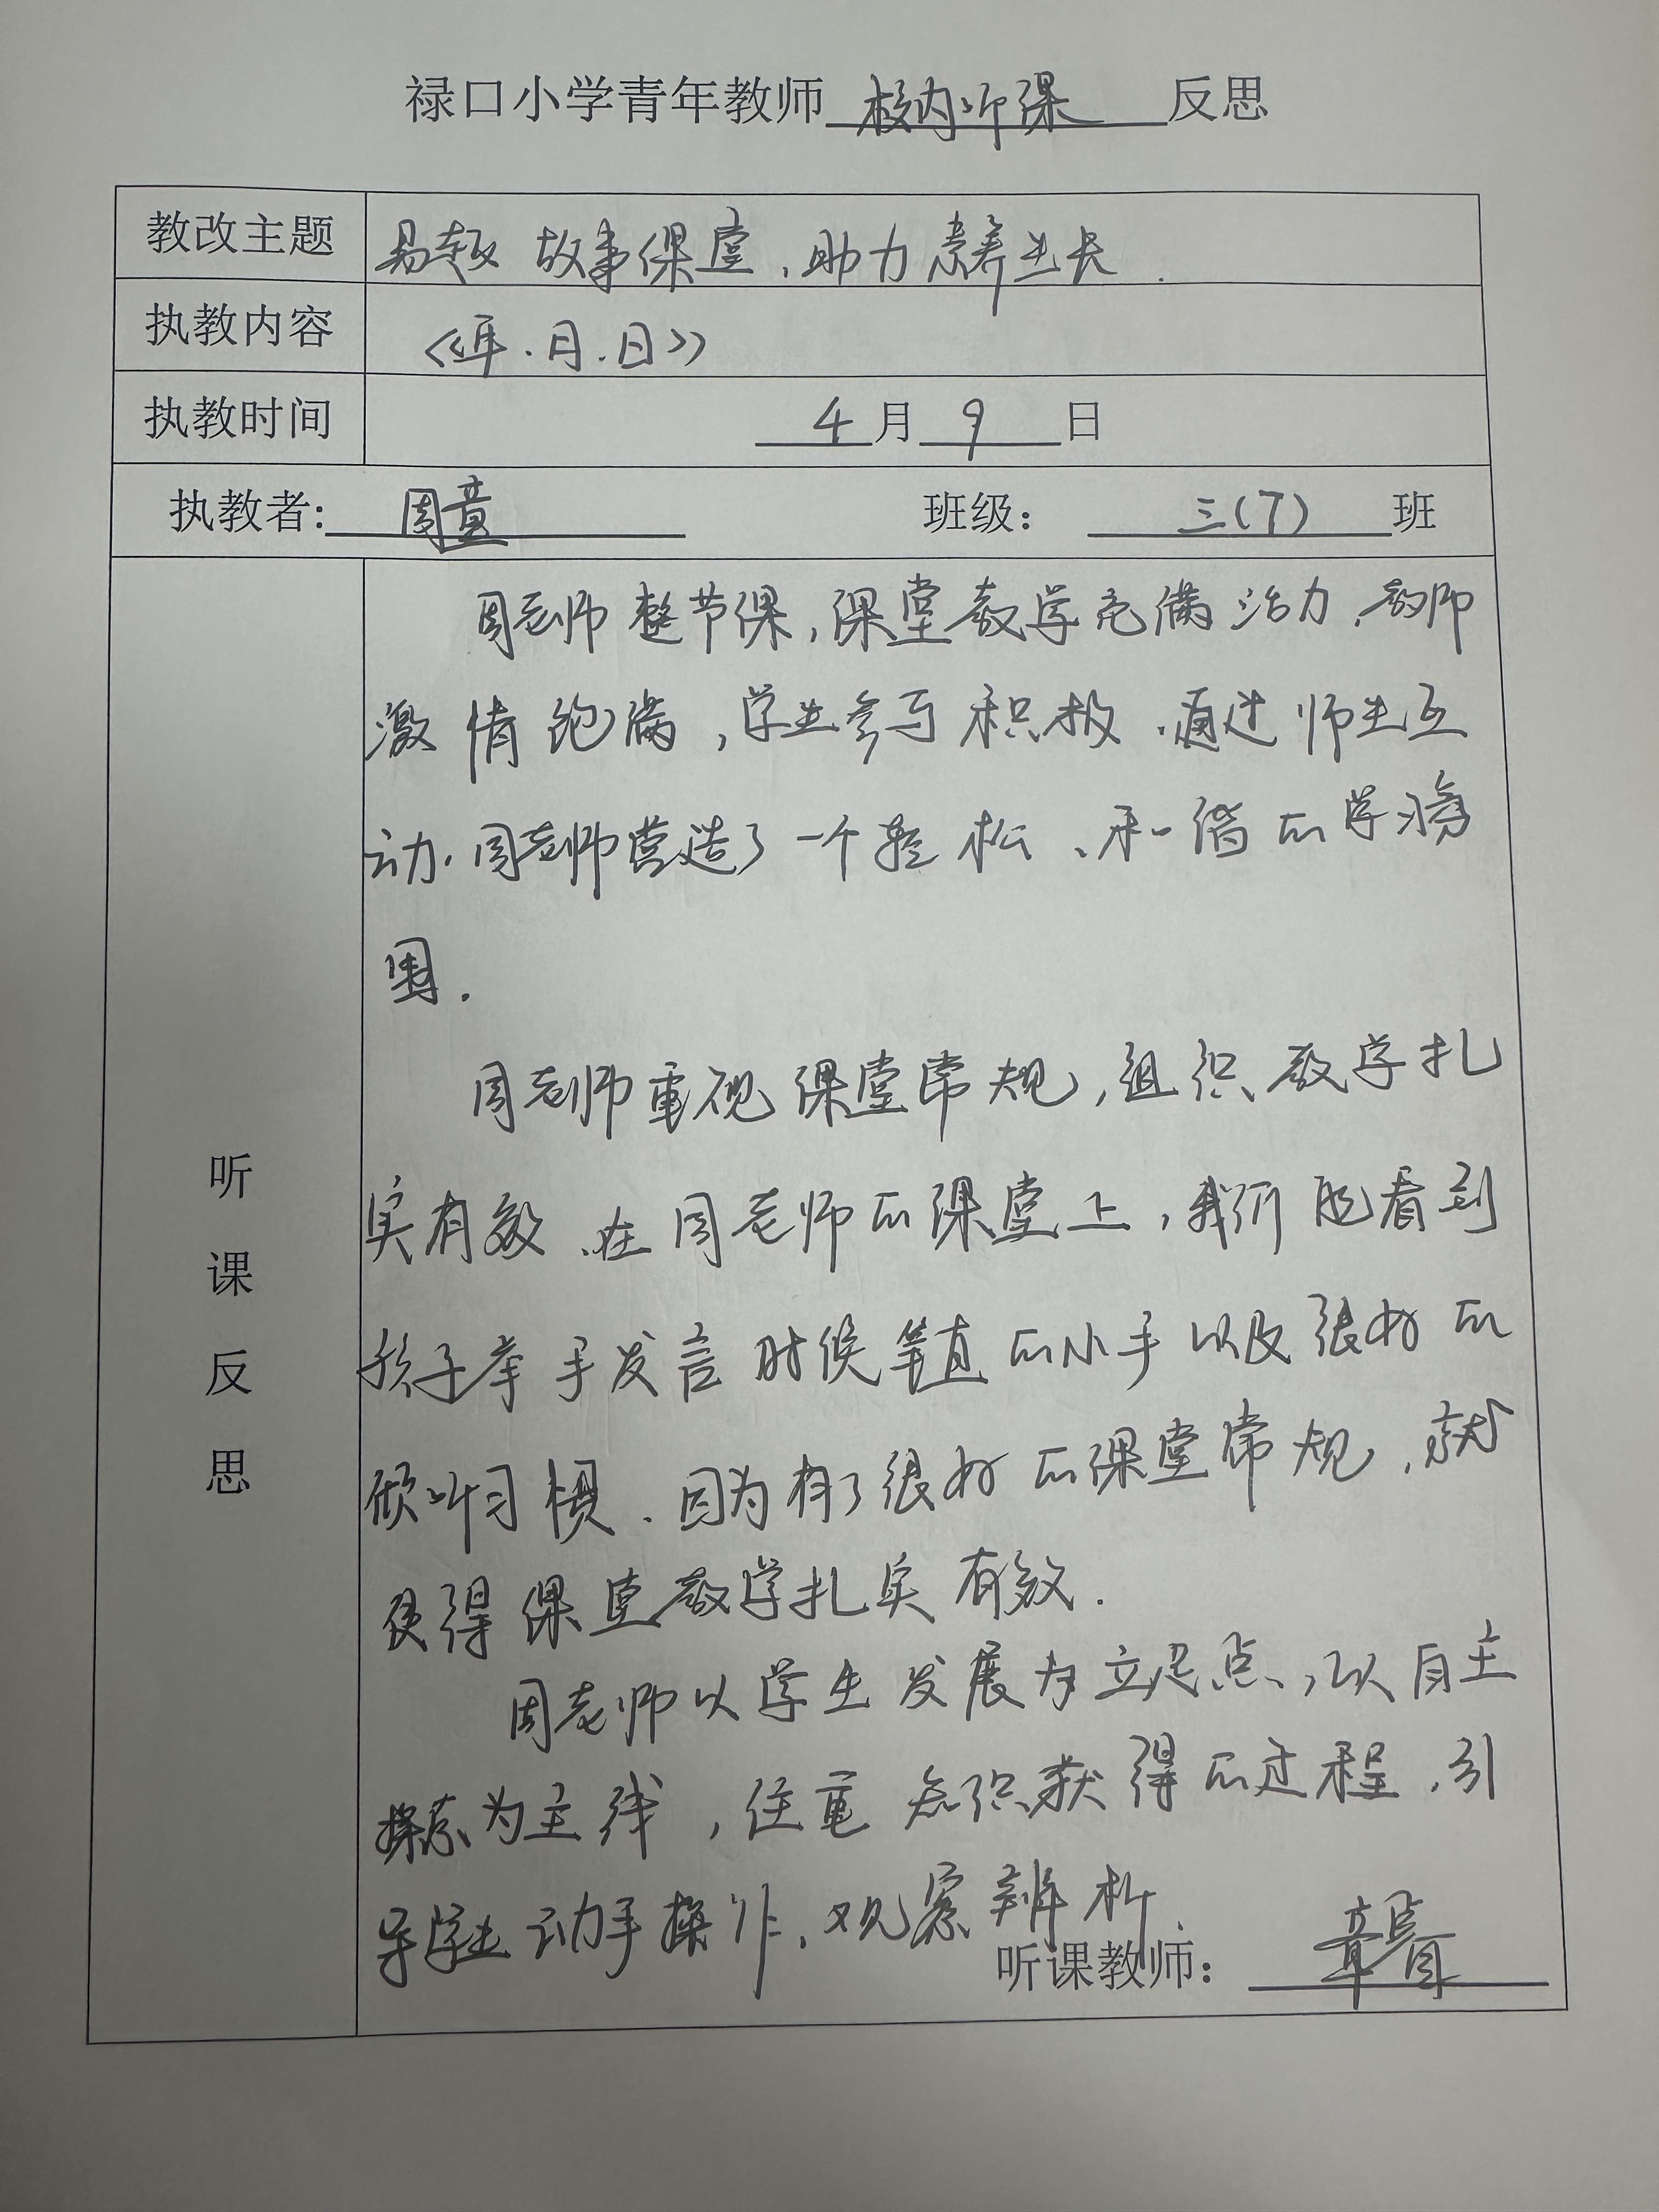 禄口小学青年教师 校内听课 反思
教改主题 易趣故事课堂,助力素养生长.
执教内容 《年.月.日》
执教时间 4月9日
执教者: 周 班级: 三(7)班
周老师整节课,课堂教学充满活力.教师
激情饱满,学生参与积极.通过师生互
动.周老师营造了一个轻松、和谐的学习氛
围.
周老师重视课堂常规,组织教学扎
实有效.在周老师的课堂上,我们能看到
孩子举手发言时候笔直的小手以及很好的
倾听习惯.因为有了很好的课堂常规,就
使得课堂教学扎实有效.
周老师以学生发展为立足点,以自主
探索为主线,注重知识获得的过程.引
导学生动手操作.观察辨析.
听课教师: 章
听
课
反
思